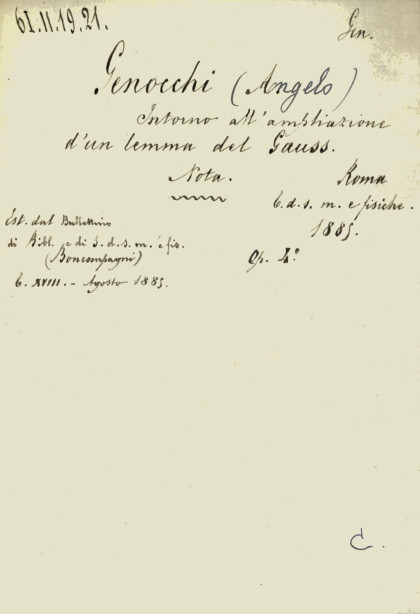 61.II.19.21.
Gen.
Genocchi (Angelo)
Intorno all'ampliazione
d'un lemma del Gauss.
Nota.
Roma
t. d. s. m. e fisiche.
1885.
Op. 4º
Est. dal Bullettino
di Bibl. e di S. d. s. m. e fis.
(Boncompagni)
t. XVIII. - Agosto 1885.
C.